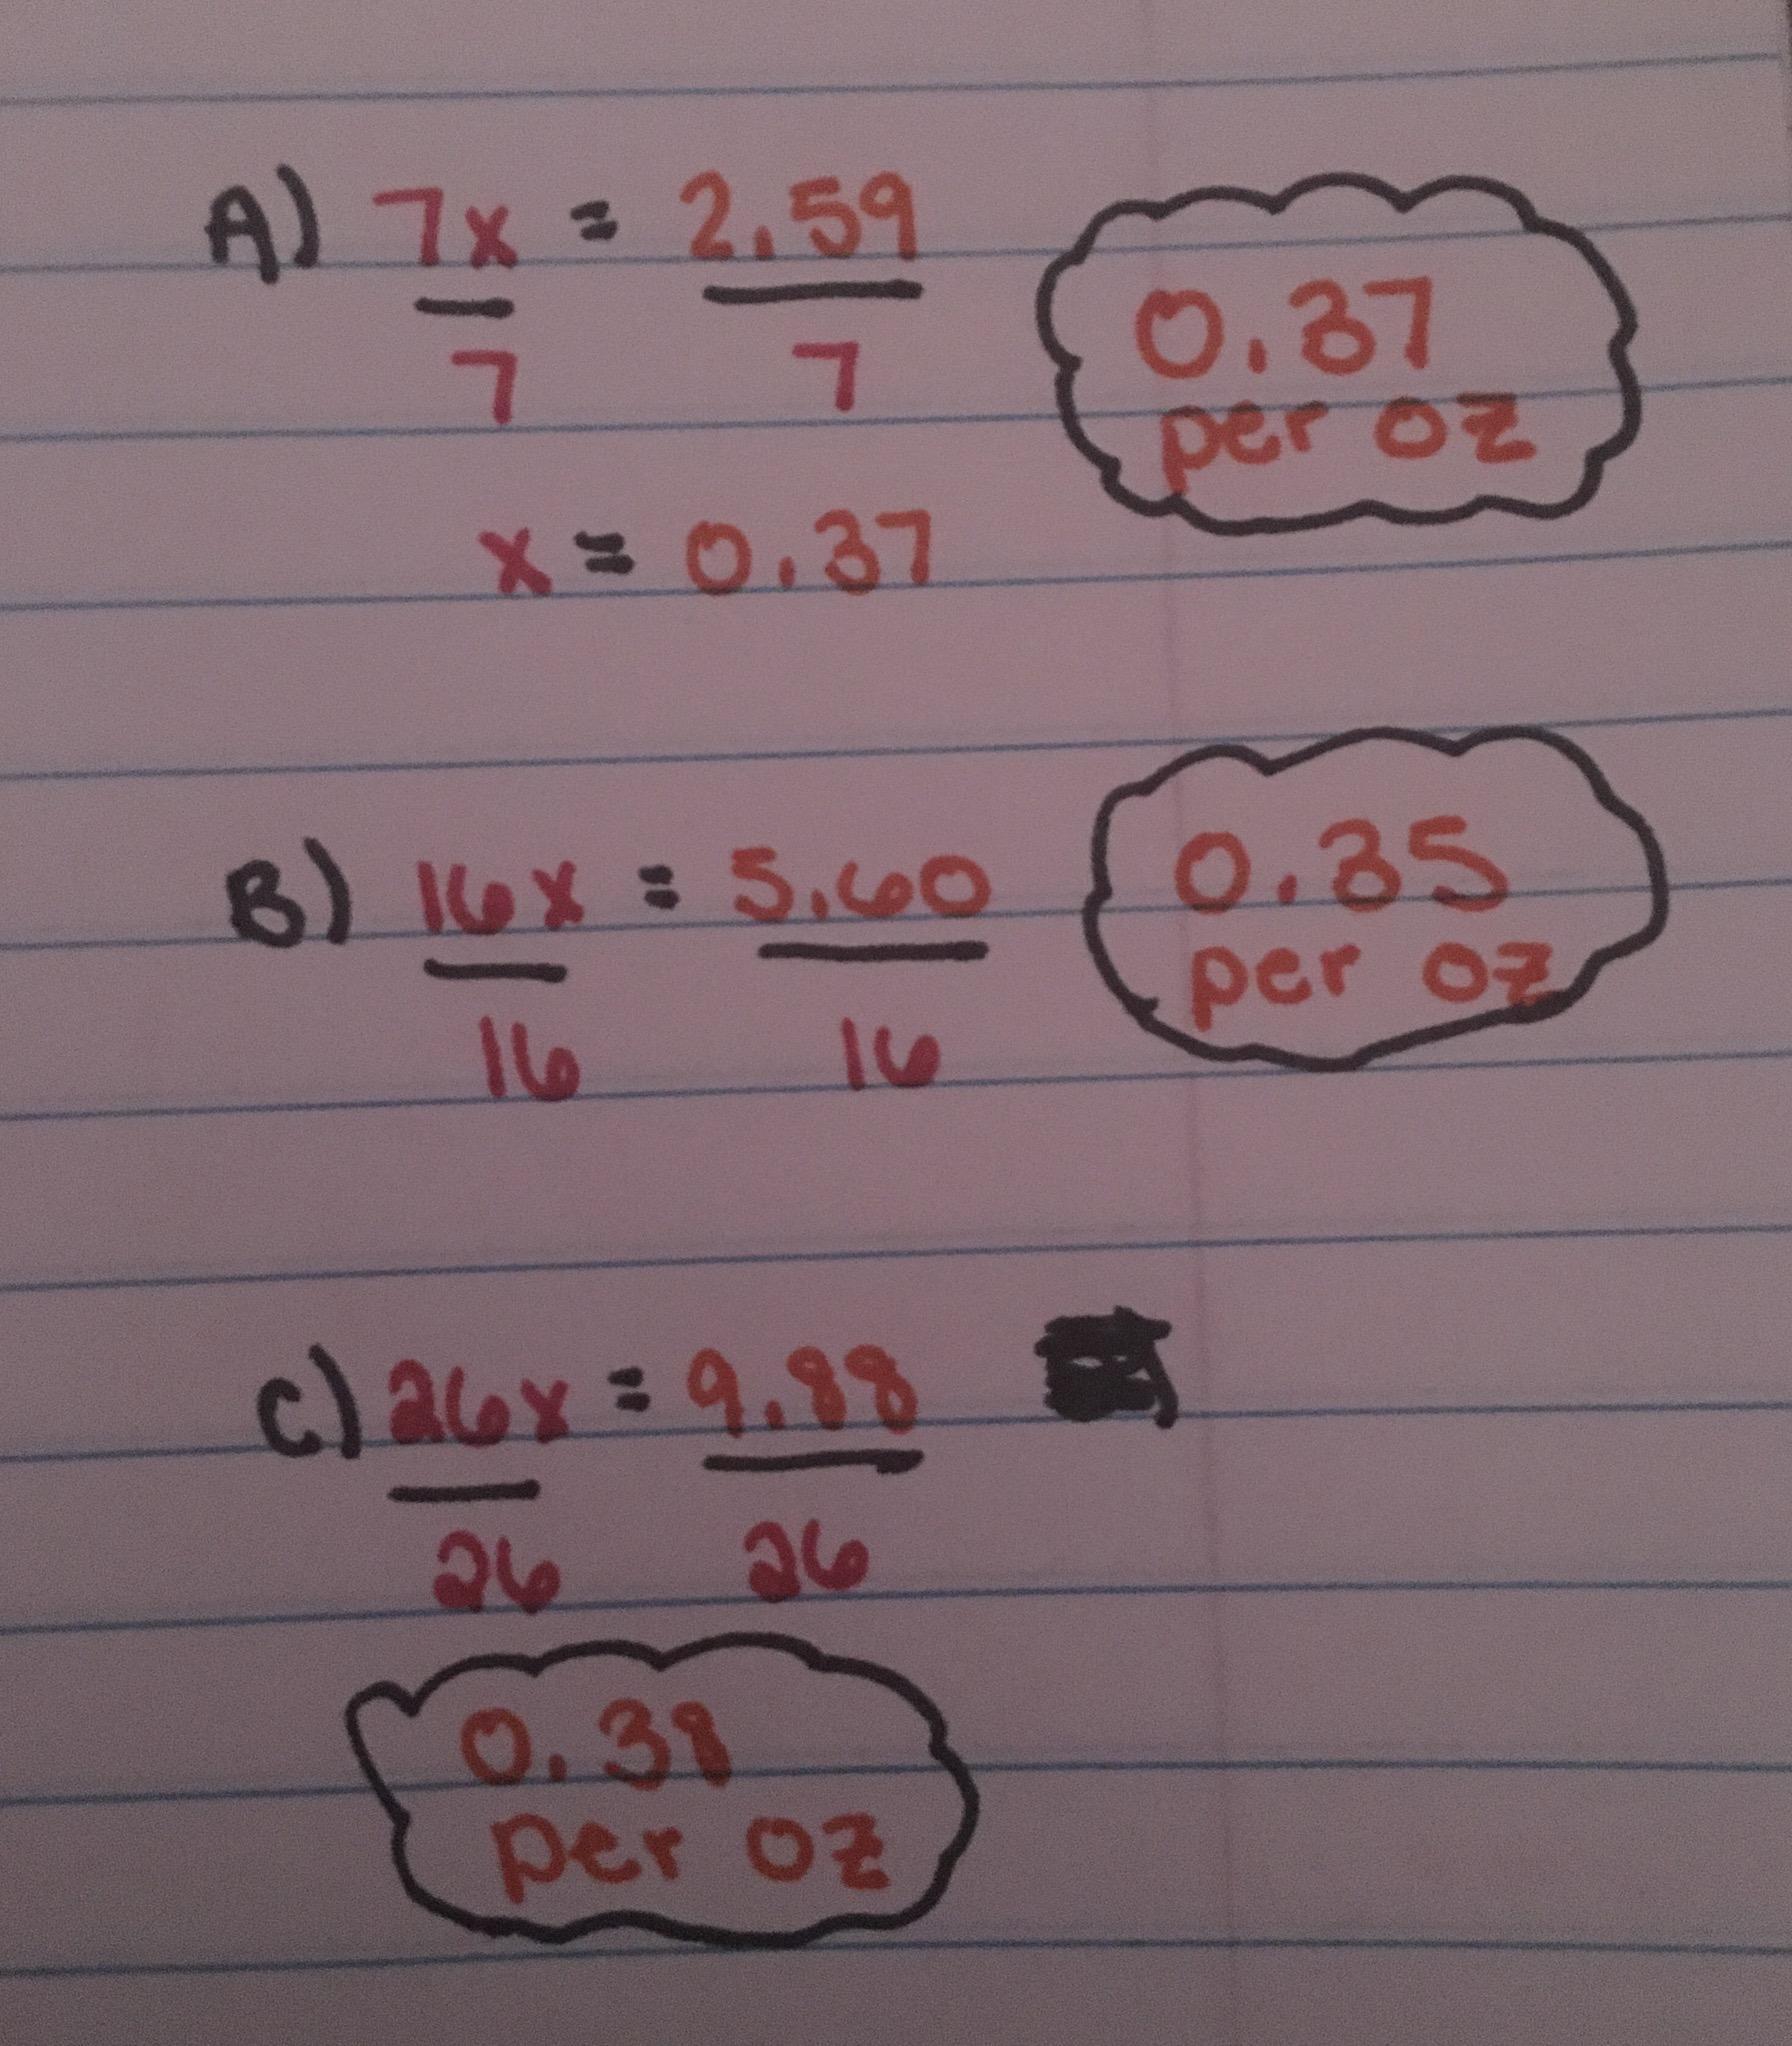 A) 7x = 2.59
7 7
0.37
per oz
x = 0.37
B) 16x = 5.60
16 16
0.35
per oz
C) 26x = 9.88
26 26
0.38
per oz